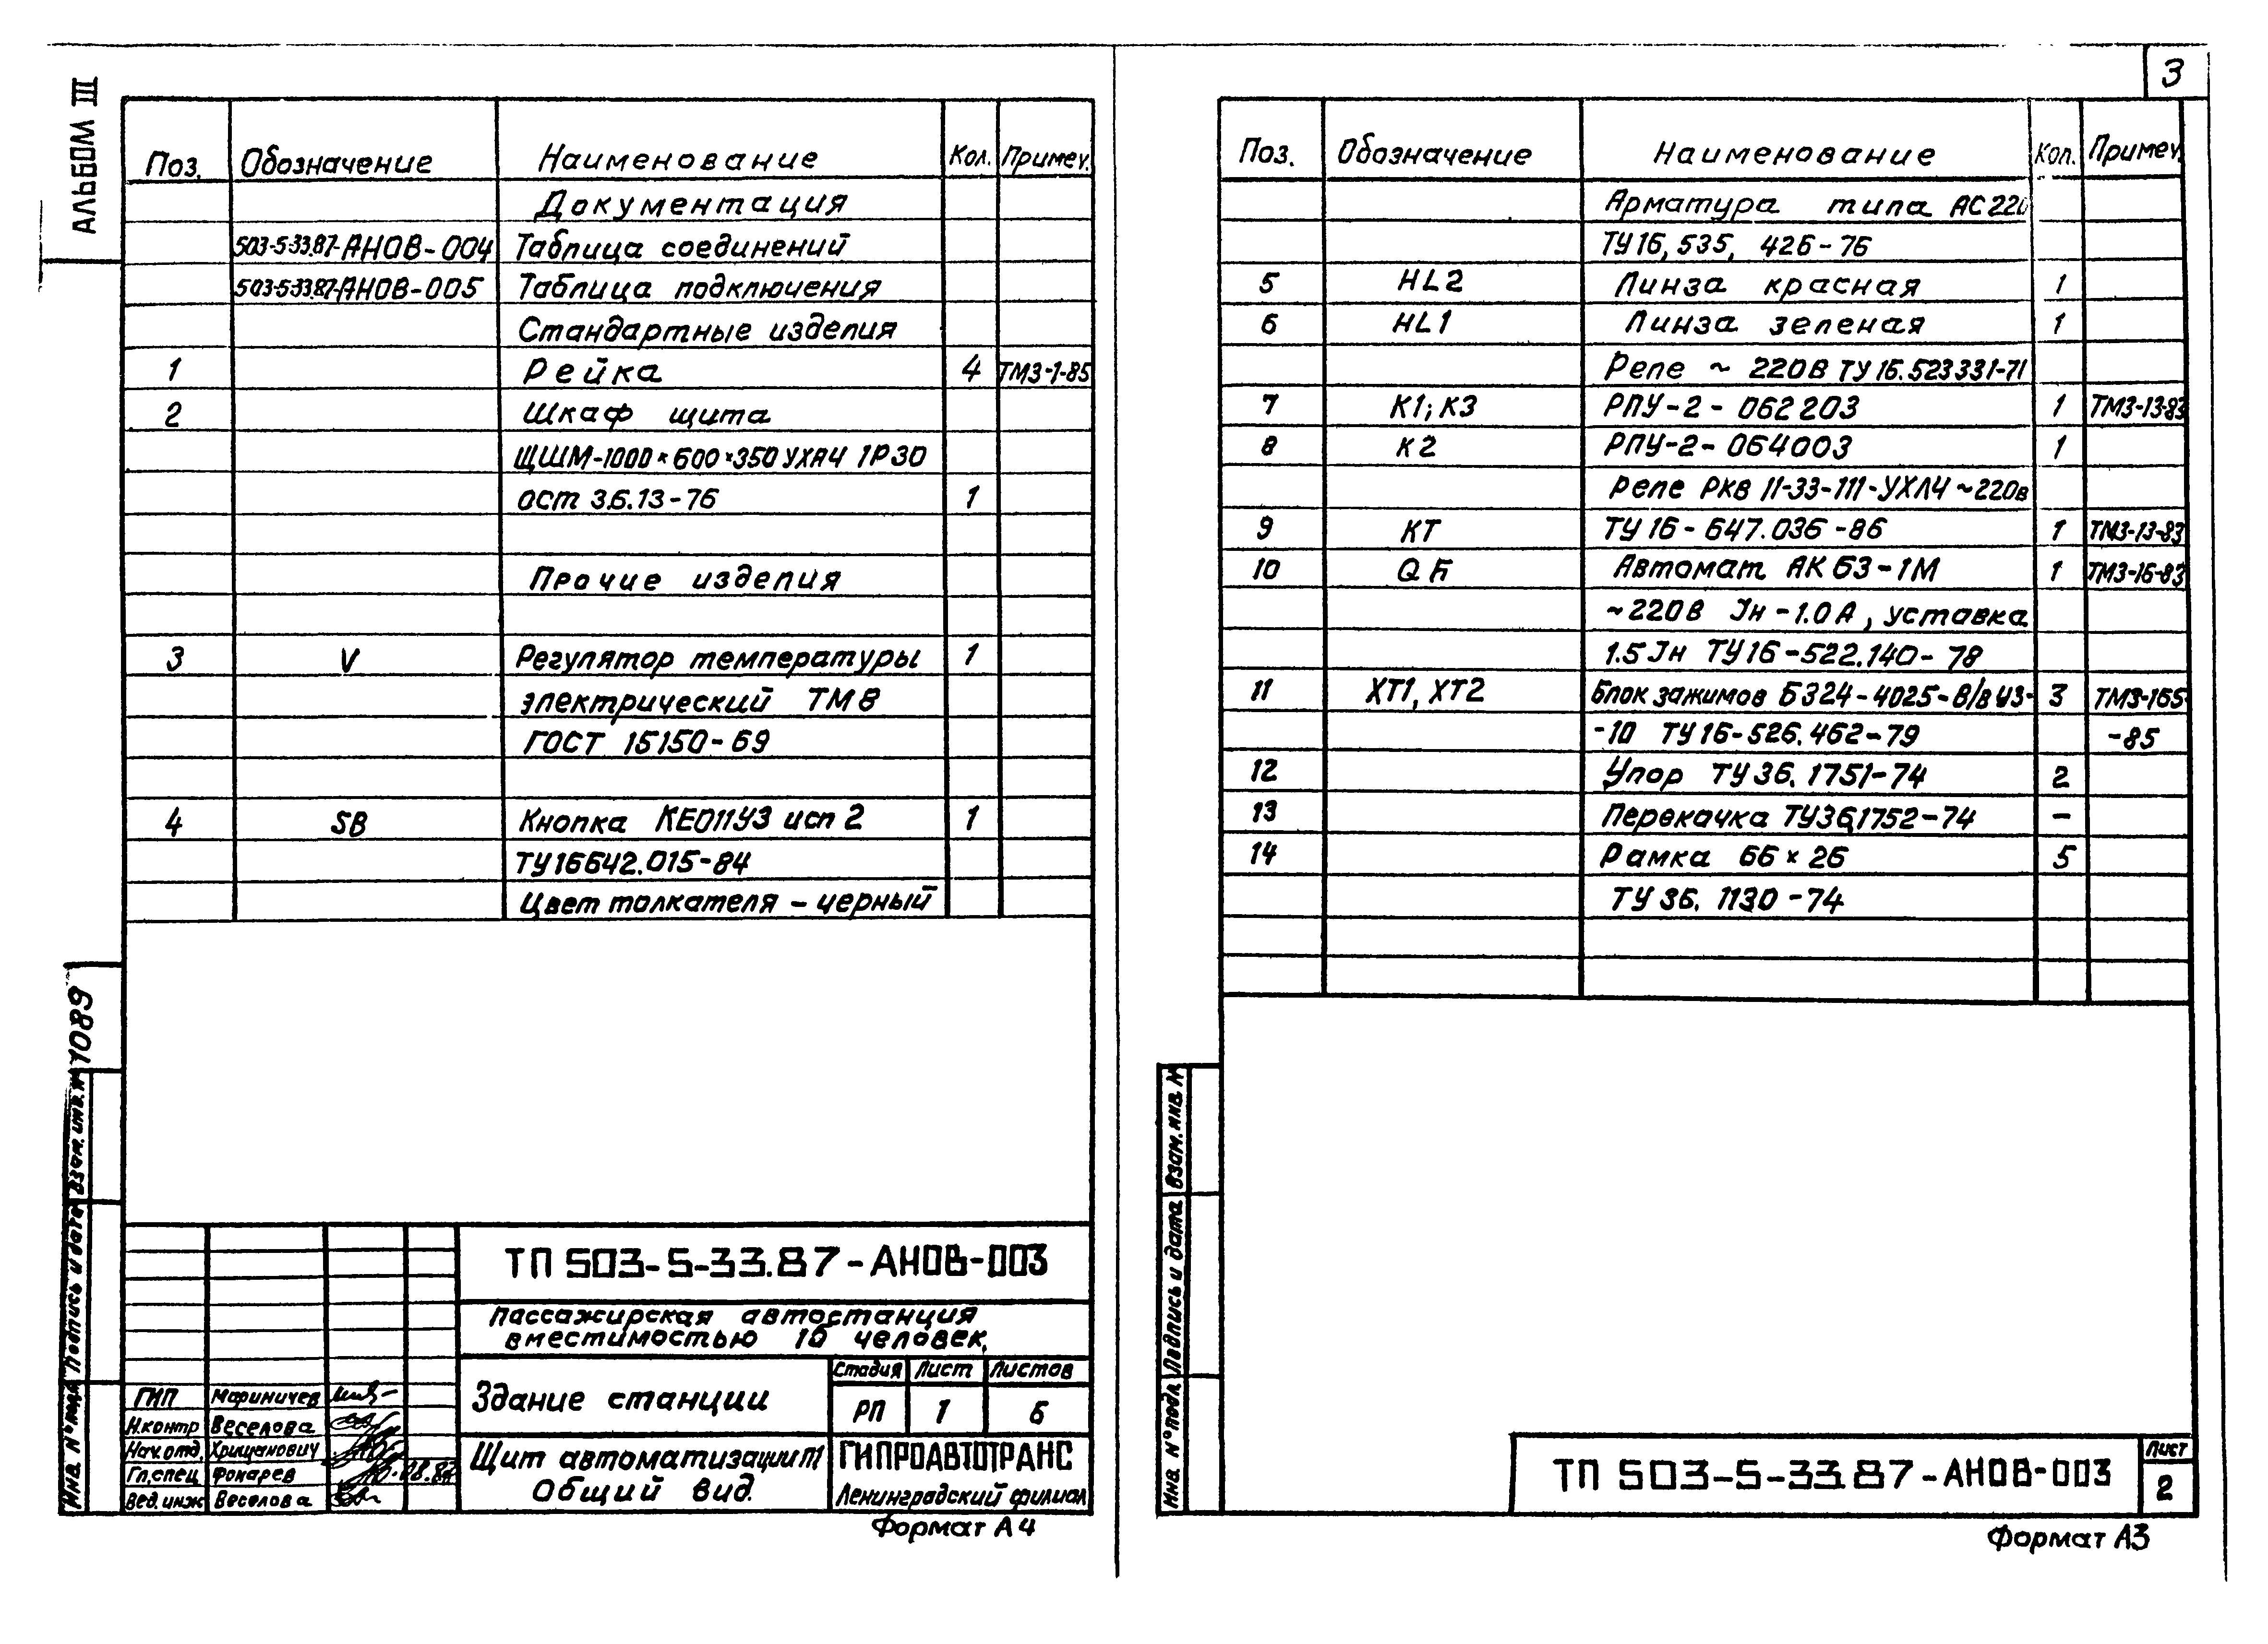 Альбом III
Поз. Обозначение Наименование Кол. Примеч.
Документация
503-5-33.87-АНОВ-004 Таблица соединений
503-5-33.87-АНОВ-005 Таблица подключения
Стандартные изделия
1 Рейка 4 ТМ3-1-85
2 Шкаф щита
ЩШМ-1000×600×350 УХЛ4 1Р30
ост 3.6.13-76 1
Прочие изделия
3 V Регулятор температуры 1
электрический ТМ8
ГОСТ 15150-69
4 SB Кнопка КЕ011У3 исп 2 1
ТУ16642.015-84
Цвет толкателя - черный
1089
Взам. инв. №
Подпись и дата
Инв. № подл.
ТП 503-5-33.87-АНОВ-003
Пассажирская автостанция
вместимостью 10 человек.
Здание станции
Стадия Лист Листов
РП 1 6
Щит автоматизации П1
Общий вид.
ГИПРОАВТОТРАНС
Ленинградский филиал
ГИП Мариничев
Н.контр Веселова
Нач.отд. Хрищанович
Гл.спец Фокарев
Вед.инж Веселова
Формат А4
3
Поз. Обозначение Наименование Кол. Примеч.
Арматура типа АС220
ТУ16,535, 426-76
5 HL2 Линза красная 1
6 HL1 Линза зеленая 1
Реле ~ 220В ТУ16.523331-71
7 К1; К3 РПУ-2-062203 1 ТМ3-13-83
8 К2 РПУ-2-064003 1
Реле РКВ 11-33-111-УХЛ4 ~220в
9 КТ ТУ16-647.036-86 1 ТМ3-13-83
10 QF Автомат АК63-1М 1 ТМ3-16-83
~220В Iн-1.0А, уставка
1.5Iн ТУ16-522.140-78
11 ХТ1, ХТ2 Блок зажимов Б324-4025-В/В У3- 3 ТМ3-165-
-10 ТУ16-526.462-79 -85
12 Упор ТУ36.1751-74 2
13 Перекачка ТУ36,1752-74 —
14 Рамка 66×26 5
ТУ36. 1130-74
Взам. инв. №
Подпись и дата
Инв. № подл.
ТП 503-5-33.87-АНОВ-003
Лист
2
Формат А3